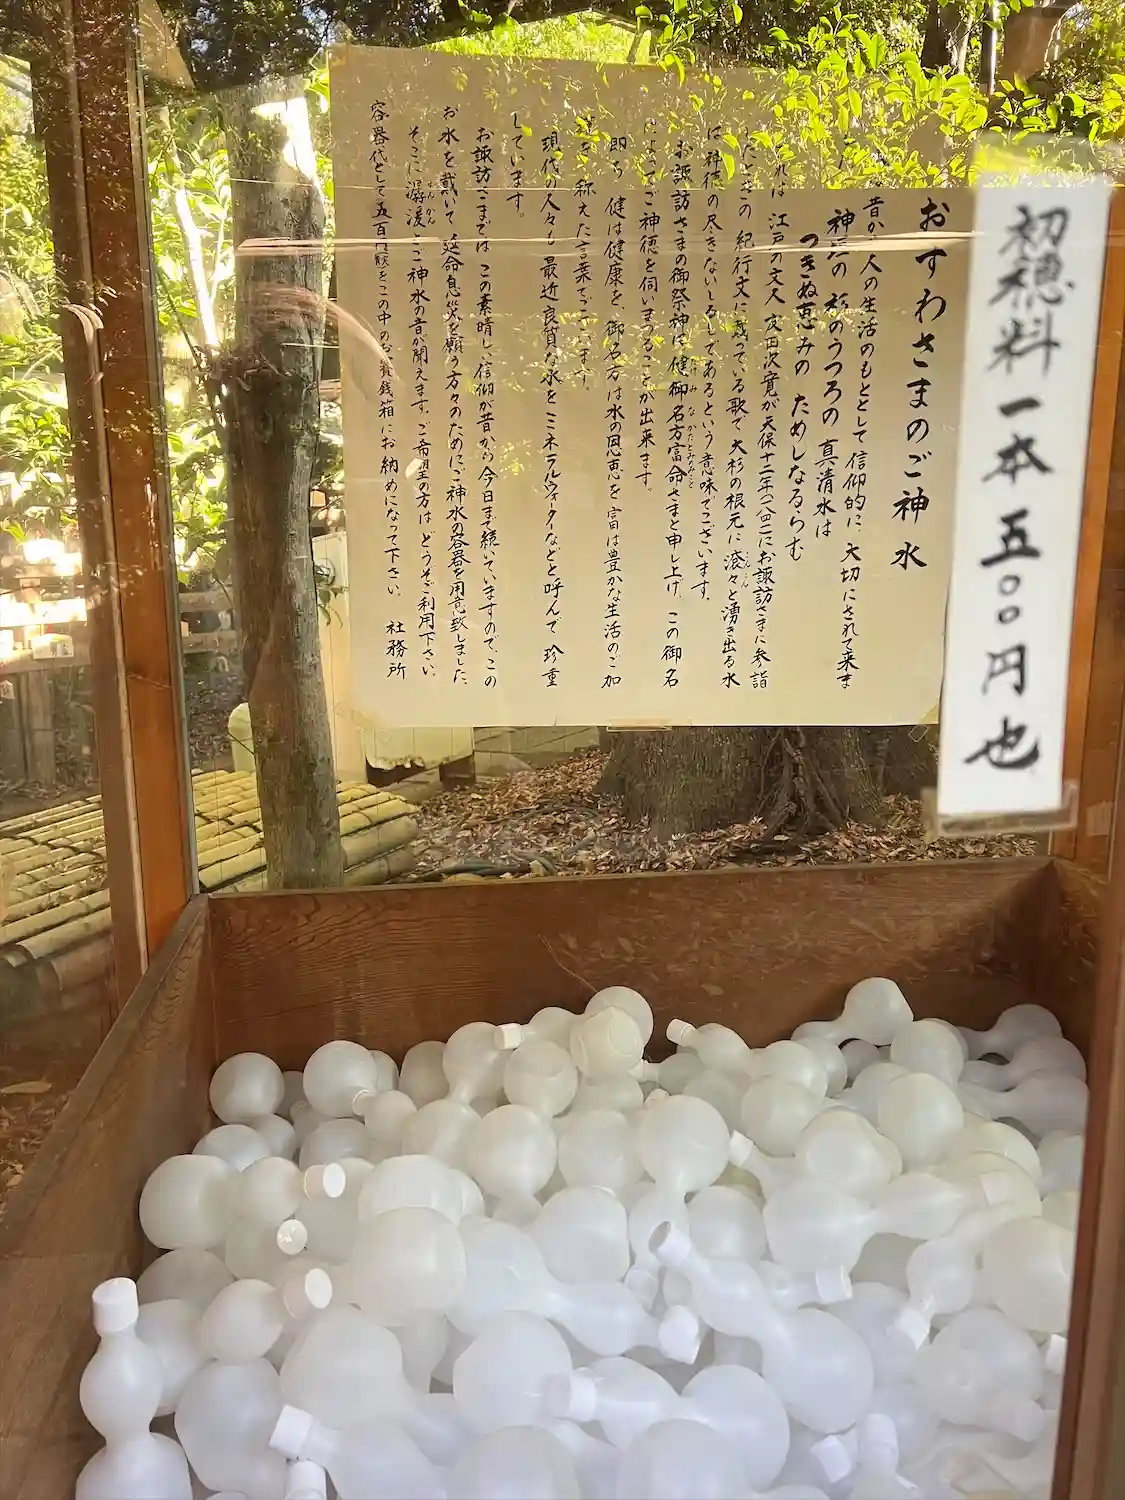 初穂料一本五〇〇円也
おすわさまのご神水
昔から人の生活のもととして信仰的に大切にされて来ま
神垣の杉のうつろの真清水は
つきぬ恵みのためしなるらむ
れは江戸の文人 次覚が天保十二年(一八四一)にお諏訪さまに参詣
たときの紀行文に載っている歌で大杉の根元に滾々と湧き出る水
は神徳の尽きないしるしであるという意味でございます。
お諏訪さまの御祭神は健御名方富命さまと申し上げ、この御名
によってご神徳を伺いまつることが出来ます。
即ち健は健康を、御名方は水の恩恵を富は豊かな生活のご加
護を称えた言葉でございます。
現代の人々も最近良質な水をミネラルウォーターなどと呼んで珍重
しています。
お諏訪さまではこの素晴しい信仰が昔から今日まで続いていますので、この
お水を戴いて延命息災を願う方々のためにご神水の容器を用意致しました。
そこに潺湲とご神水の音が聞えます。ご希望の方はどうぞご利用下さい。
容器代として五百円をこの中のお賽銭箱にお納めになって下さい。 社務所